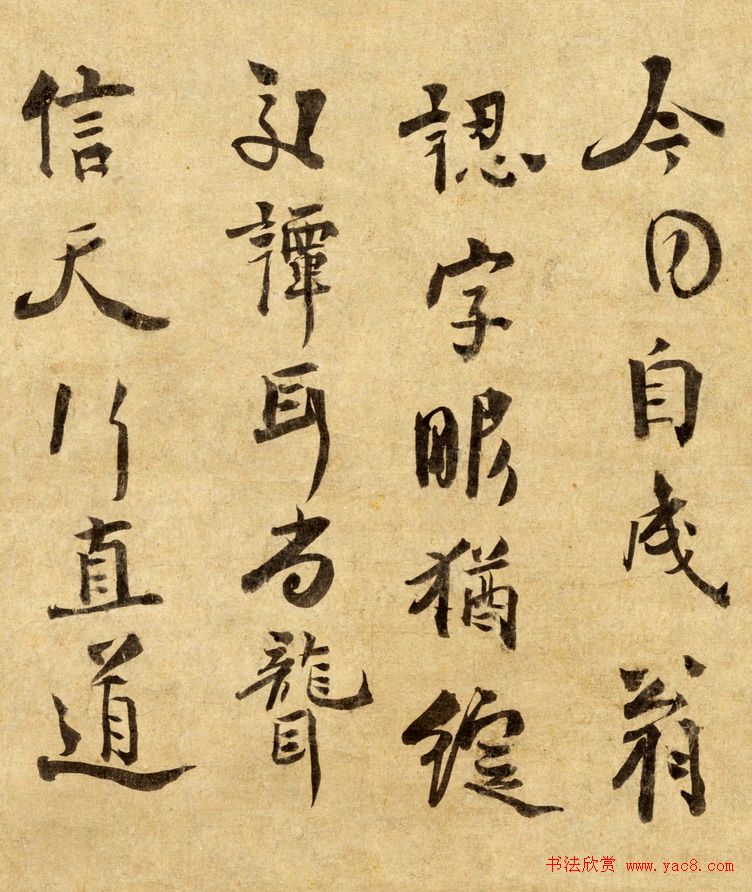 今日自成翁
認字眼猶綻
交譚耳尚聾
信天行直道
书法欣赏 www.yac8.com